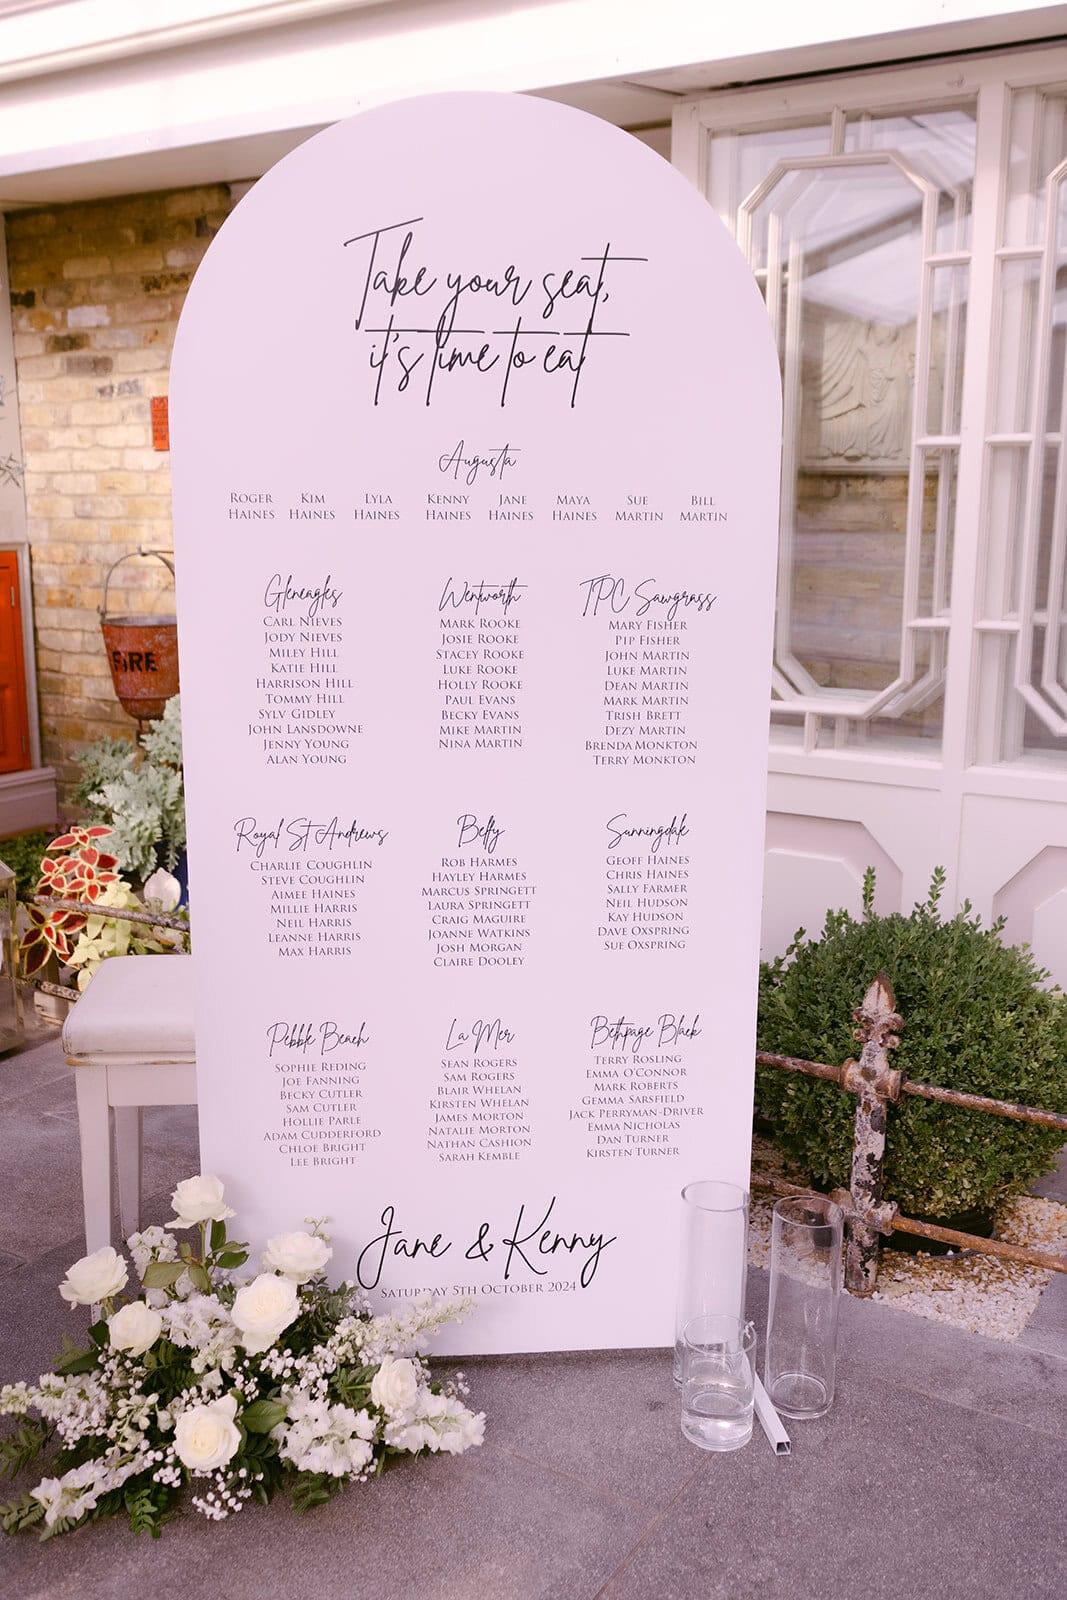 Take your seat,
it's time to eat
Augusta
ROGER HAINES
KIM HAINES
LYLA HAINES
KENNY HAINES
JANE HAINES
MAYA HAINES
SUE MARTIN
BILL MARTIN
Gleneagles
CARL NIEVES
JODY NIEVES
MILEY HILL
KATIE HILL
HARRISON HILL
TOMMY HILL
SYLV GIDLEY
JOHN LANSDOWNE
JENNY YOUNG
ALAN YOUNG
Wentworth
MARK ROOKE
JOSIE ROOKE
STACEY ROOKE
LUKE ROOKE
HOLLY ROOKE
PAUL EVANS
BECKY EVANS
MIKE MARTIN
NINA MARTIN
TPC Sawgrass
MARY FISHER
PIP FISHER
JOHN MARTIN
LUKE MARTIN
DEAN MARTIN
MARK MARTIN
TRISH BRETT
DEZY MARTIN
BRENDA MONKTON
TERRY MONKTON
Royal St Andrews
CHARLIE COUGHLIN
STEVE COUGHLIN
AIMEE HAINES
MILLIE HARRIS
NEIL HARRIS
LEANNE HARRIS
MAX HARRIS
Belfy
ROB HARMES
HAYLEY HARMES
MARCUS SPRINGETT
LAURA SPRINGETT
CRAIG MAGUIRE
JOANNE WATKINS
JOSH MORGAN
CLAIRE DOOLEY
Sunningdale
GEOFF HAINES
CHRIS HAINES
SALLY FARMER
NEIL HUDSON
KAY HUDSON
DAVE OXSPRING
SUE OXSPRING
Pebble Beach
SOPHIE REDING
JOE FANNING
BECKY CUTLER
SAM CUTLER
HOLLIE PARLE
ADAM CUDDERFORD
CHLOE BRIGHT
LEE BRIGHT
La Mer
SEAN ROGERS
SAM ROGERS
BLAIR WHELAN
KIRSTEN WHELAN
JAMES MORTON
NATALIE MORTON
NATHAN CASHION
SARAH KEMBLE
Bethpage Black
TERRY ROSLING
EMMA O'CONNOR
MARK ROBERTS
GEMMA SARSFIELD
JACK PERRYMAN-DRIVER
EMMA NICHOLAS
DAN TURNER
KIRSTEN TURNER
Jane & Kenny
SATURDAY 5TH OCTOBER 2024
FIRE